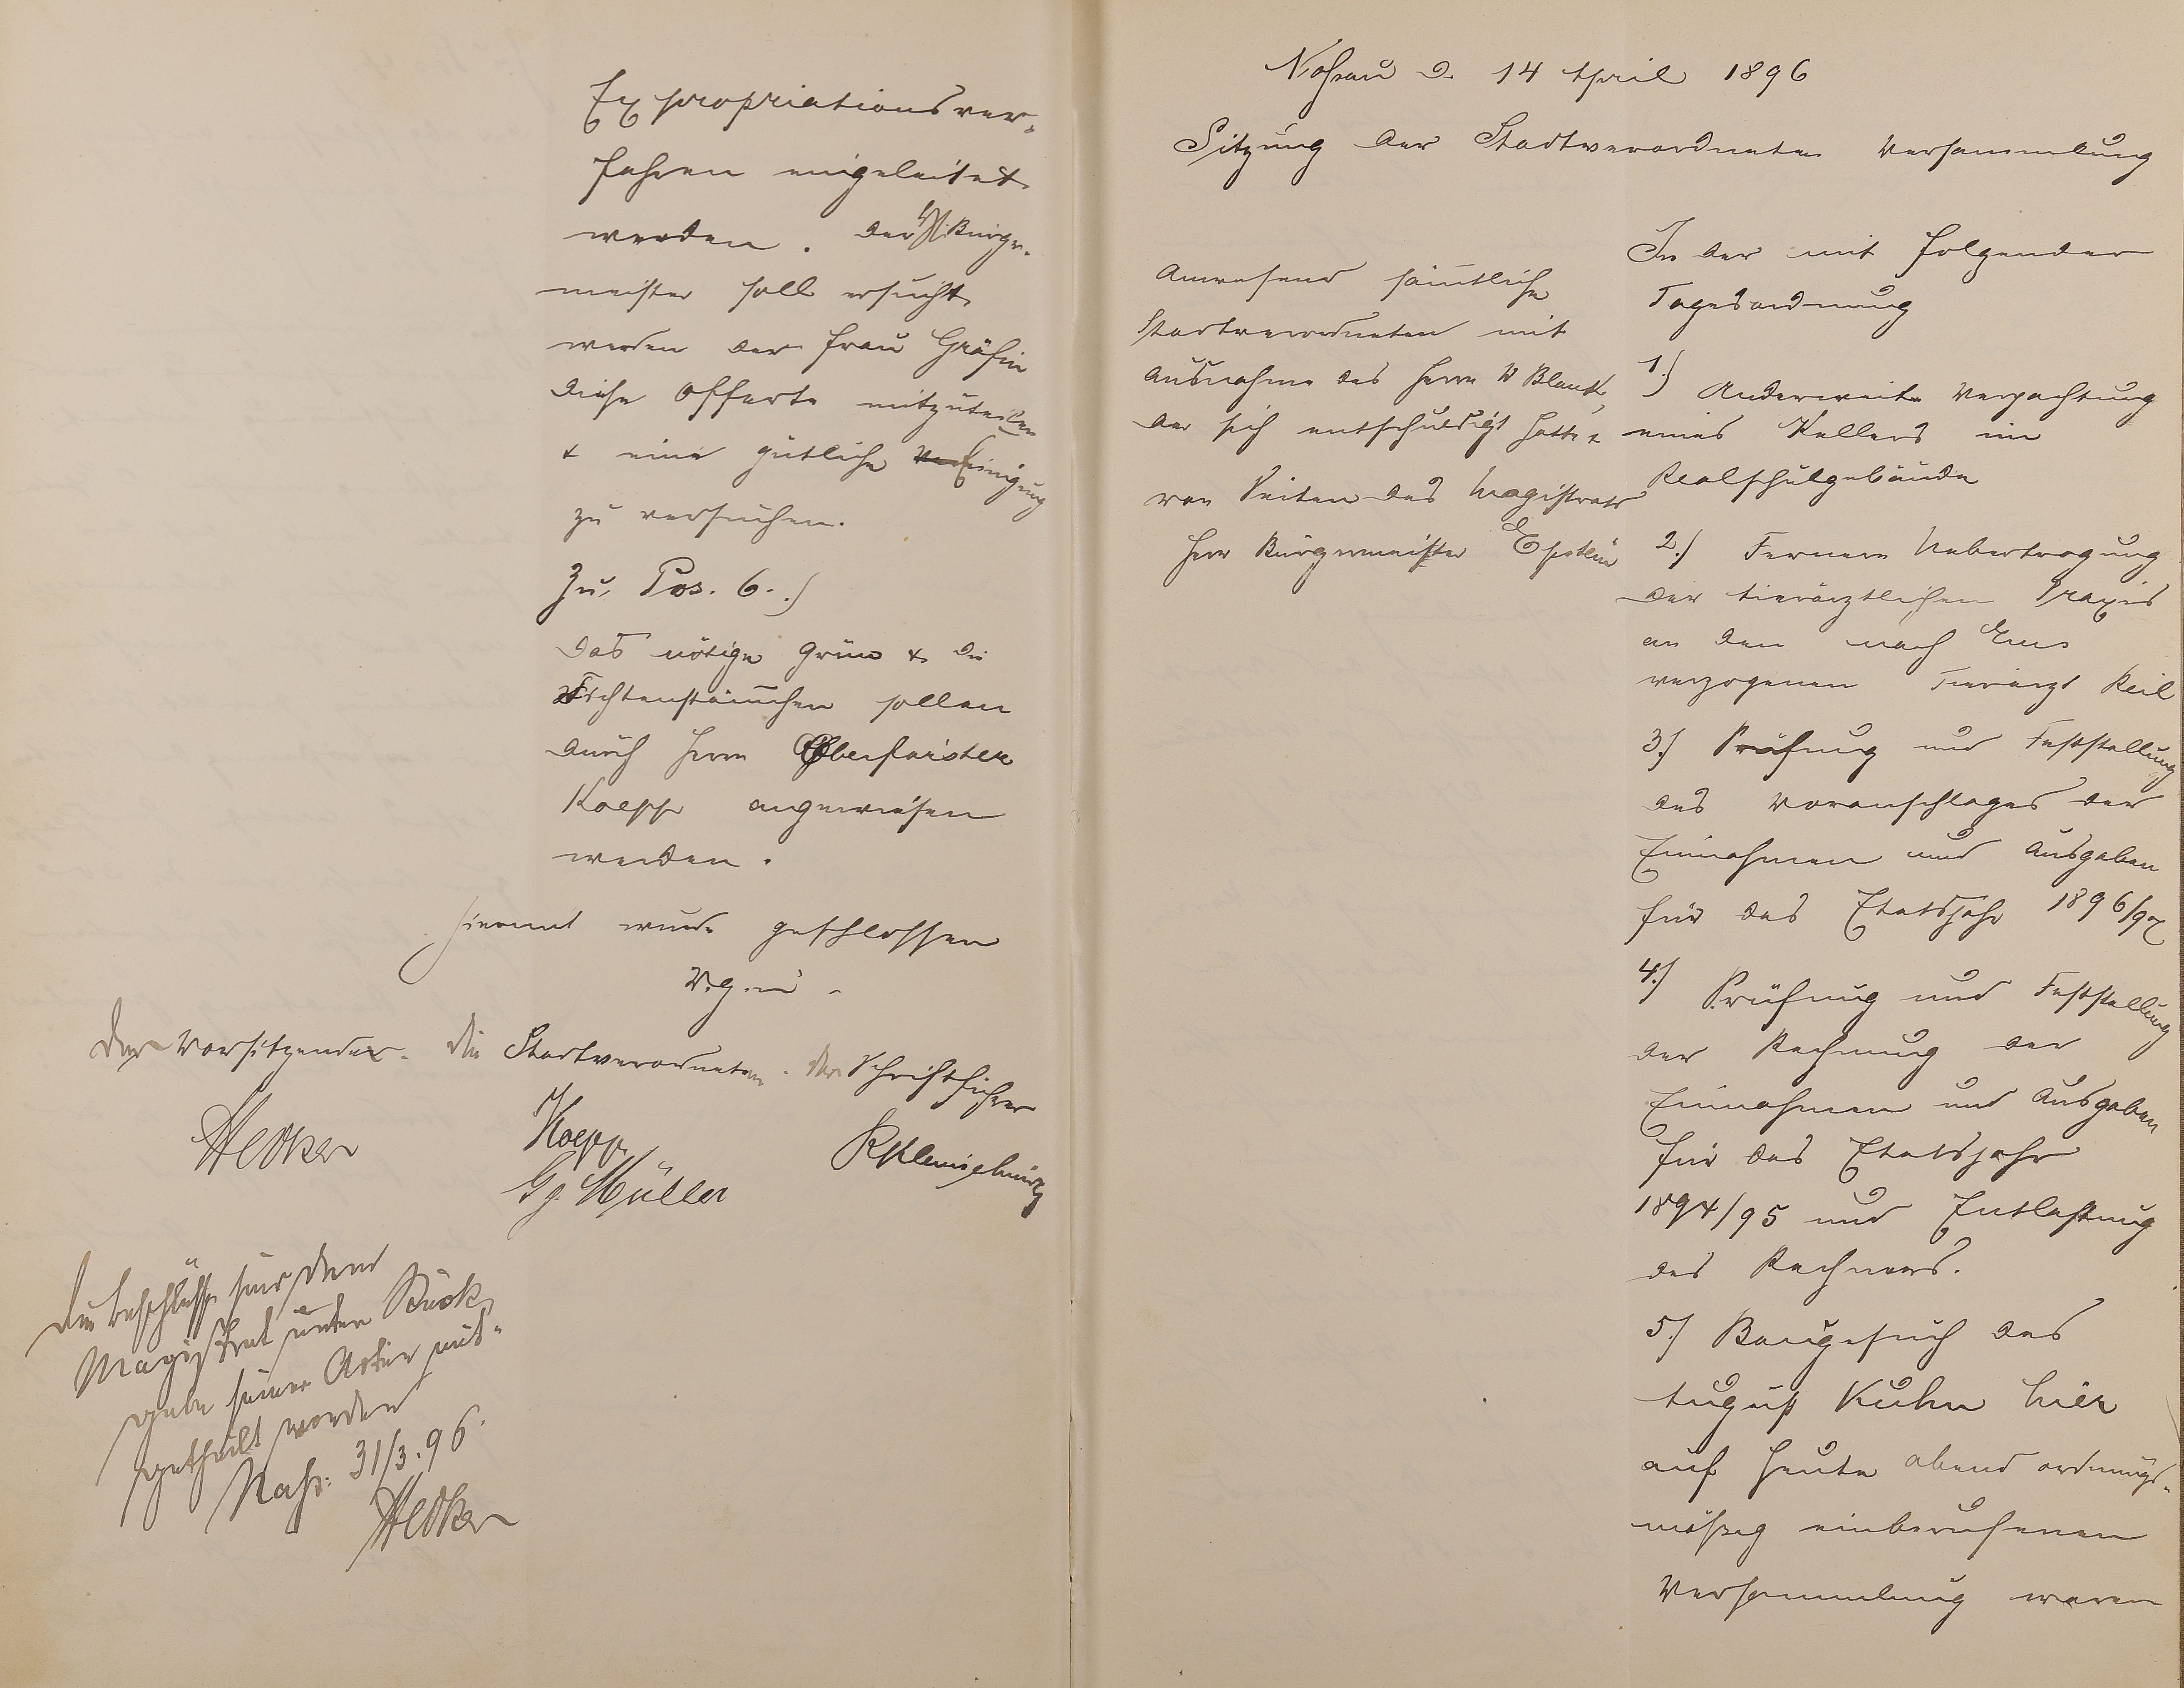 Expropriationsver-
fahren eingeleitet
werden. Der H. Bürger-
meister soll ersucht
werden der Frau Gräfin
diese Offerte mitzuteilen
& eine gütliche Einigung
zu versuchen.
Zu Pos. 6.)
Das nötige Grün & die
Fichtenstämchen sollen
durch Herrn Oberförster
Koepp angewiesen
werden.
Hiermit wurde geschlossen
V. g. u.
Der Vorsitzender. Die Stadtverordneten. Der Schriftführer
Koepp
Gg. Müller
Die Beschlüsse sind dem
Magistrat unter Rück-
gabe seiner Akten mit-
getheilt worden
Nass: 31/3.96.
Nassau d. 14 April 1896
Sitzung der Stadtverordneten Versammlung
Anwesend sämtliche
Stadtverordneten mit
Ausnahme des Herrn W Blank,
der sich entschuldigt hatte &
von Seiten des Magistrats
Herr Bürgermeister Epstein
In der mit folgender
Tagesordnung
1.) Anderweite Verpachtung
eines Kellers im
Realschulgebäude
2.) Fernere Uebertragung
der tierärztlichen Praxis
an den nach Ems
verzogenen Tierarzt Keil
3.) Prüfung und Feststellung
des Voranschlages der
Einnahmen und Ausgaben
für das Etatsjahr 1896/97
4.) Prüfung und Feststellung
der Rechnung der
Einnahmen und Ausgaben
für das Etatsjahr
1894/95 und Entlastung
des Rechners.
5.) Baugesuch des
August Kuhn hier
auf heute abend ordnungs-
mäßig einberufenen
Versammlung waren